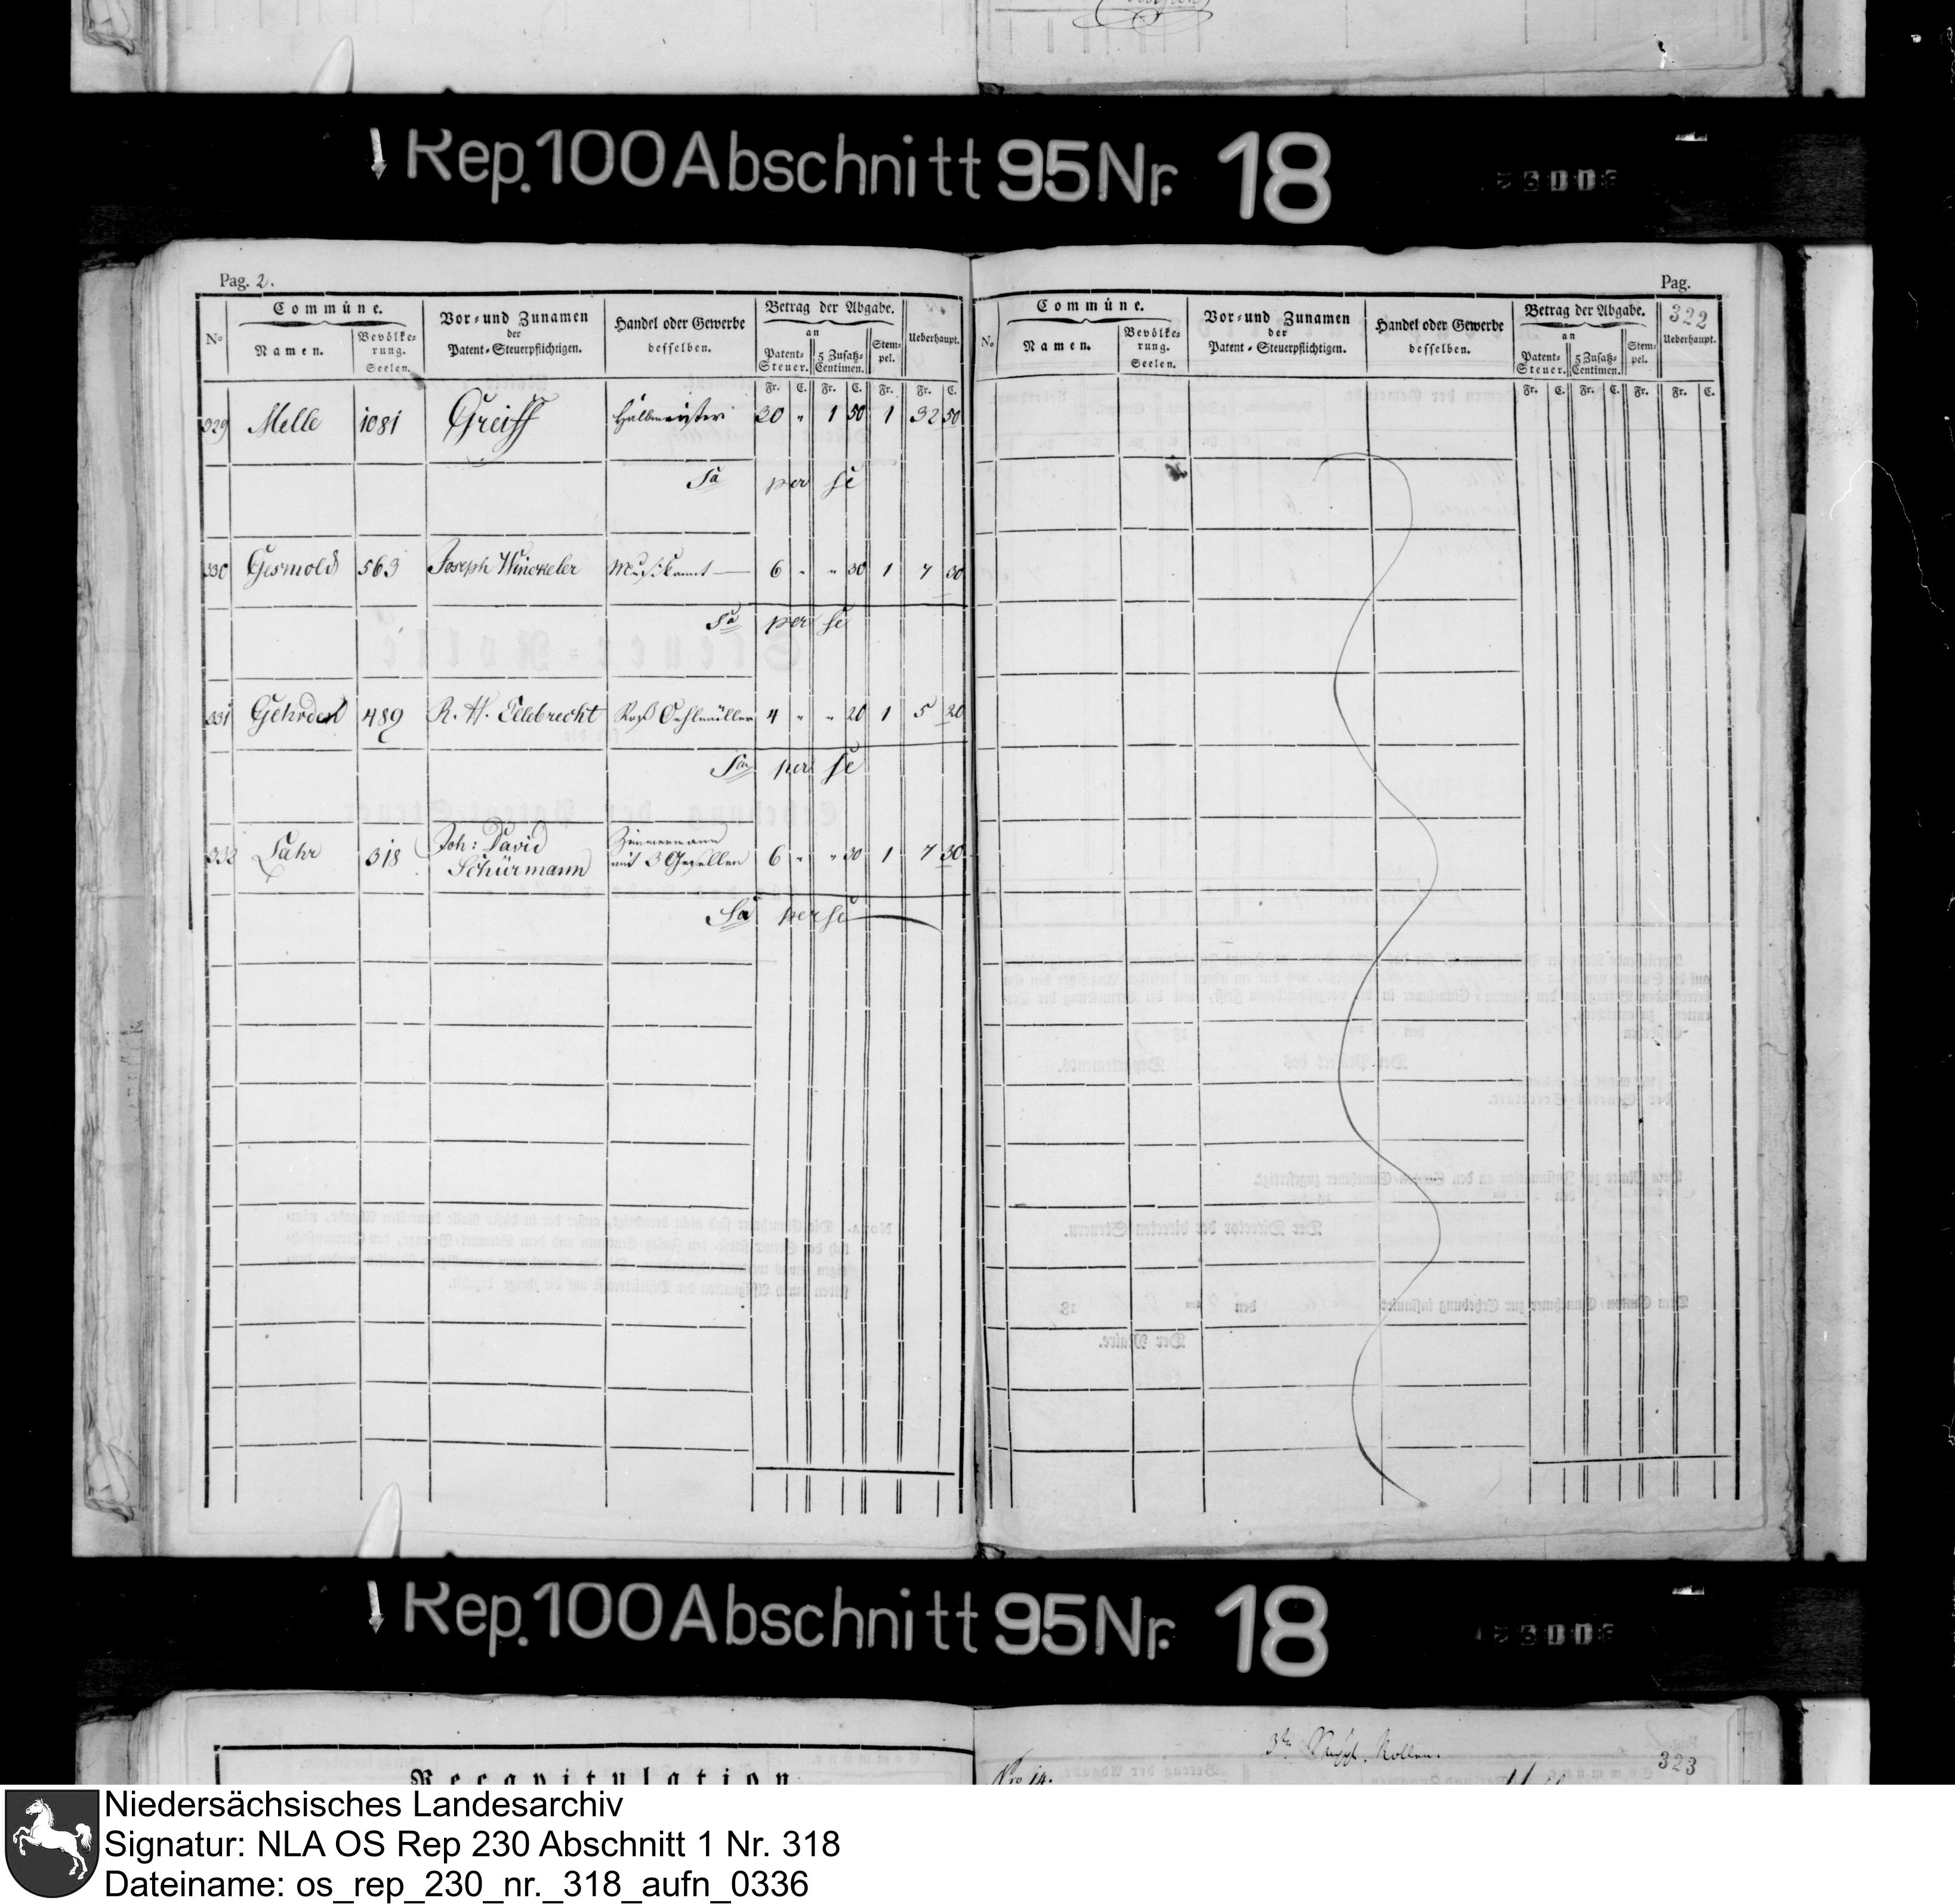 Rep. 100 Abschnitt 95 Nr. 18
Pag. 2.
N° Commüne. Vor- und Zunamen der Patent-Steuerpflichtigen. Handel oder Gewerbe desselben. Betrag der Abgabe. Ueberhaupt.
Namen. Bevölke-rung. Seelen. an Patent-Steuer. 5 Zusatz-Centimen. Stem-pel.
Fr. C. Fr. C. Fr. Fr. C.
329 Melle 1081 Greiff Halbmeister 30 " 1 50 1 32 50
Sa per se
330 Gesmold 563 Joseph Winckeler Musikant 6 " " 30 1 7 30
Sa per se
331 Gehrden 489 R. H. Ellebrecht Roß Oehlmüller 4 " " 20 1 5 20
Sa per se
332 Lahr 318 Joh: David Schürmann Zimmermann mit 3 Gesellen 6 " " 30 1 7 30
Sa per se
Pag.
322
N° Commüne. Vor- und Zunamen der Patent-Steuerpflichtigen. Handel oder Gewerbe desselben. Betrag der Abgabe. Ueberhaupt.
Namen. Bevölke-rung. Seelen. an Patent-Steuer. 5 Zusatz-Centimen. Stem-pel.
Fr. C. Fr. C. Fr. Fr. C.
Rep. 100 Abschnitt 95 Nr. 18
Recapitulation
323
Niedersächsisches Landesarchiv
Signatur: NLA OS Rep 230 Abschnitt 1 Nr. 318
Dateiname: os_rep_230_nr._318_aufn_0336